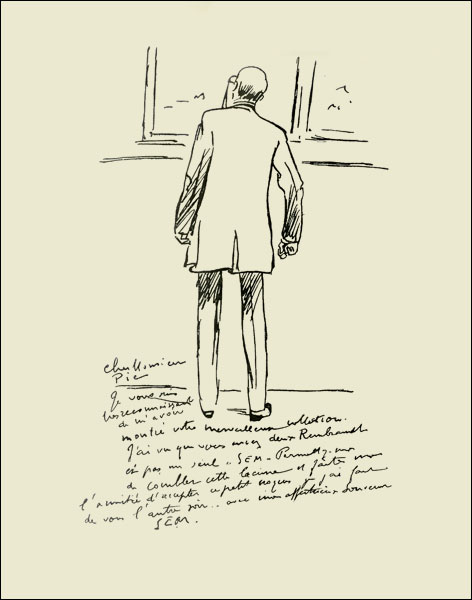 Cher Monsieur
Pic
je vous suis
très reconnaissant
de m'avoir
montré votre merveilleuse collection.
J'ai vu que vous aviez deux Rembrandt
et pas un seul "SEM - Permettez-moi
de combler cette lacune et faites moi
l'amitié d'accepter ce petit croquis que j'ai fait
de vous l'autre soir.. avec mon affectueux souvenir
SEM.